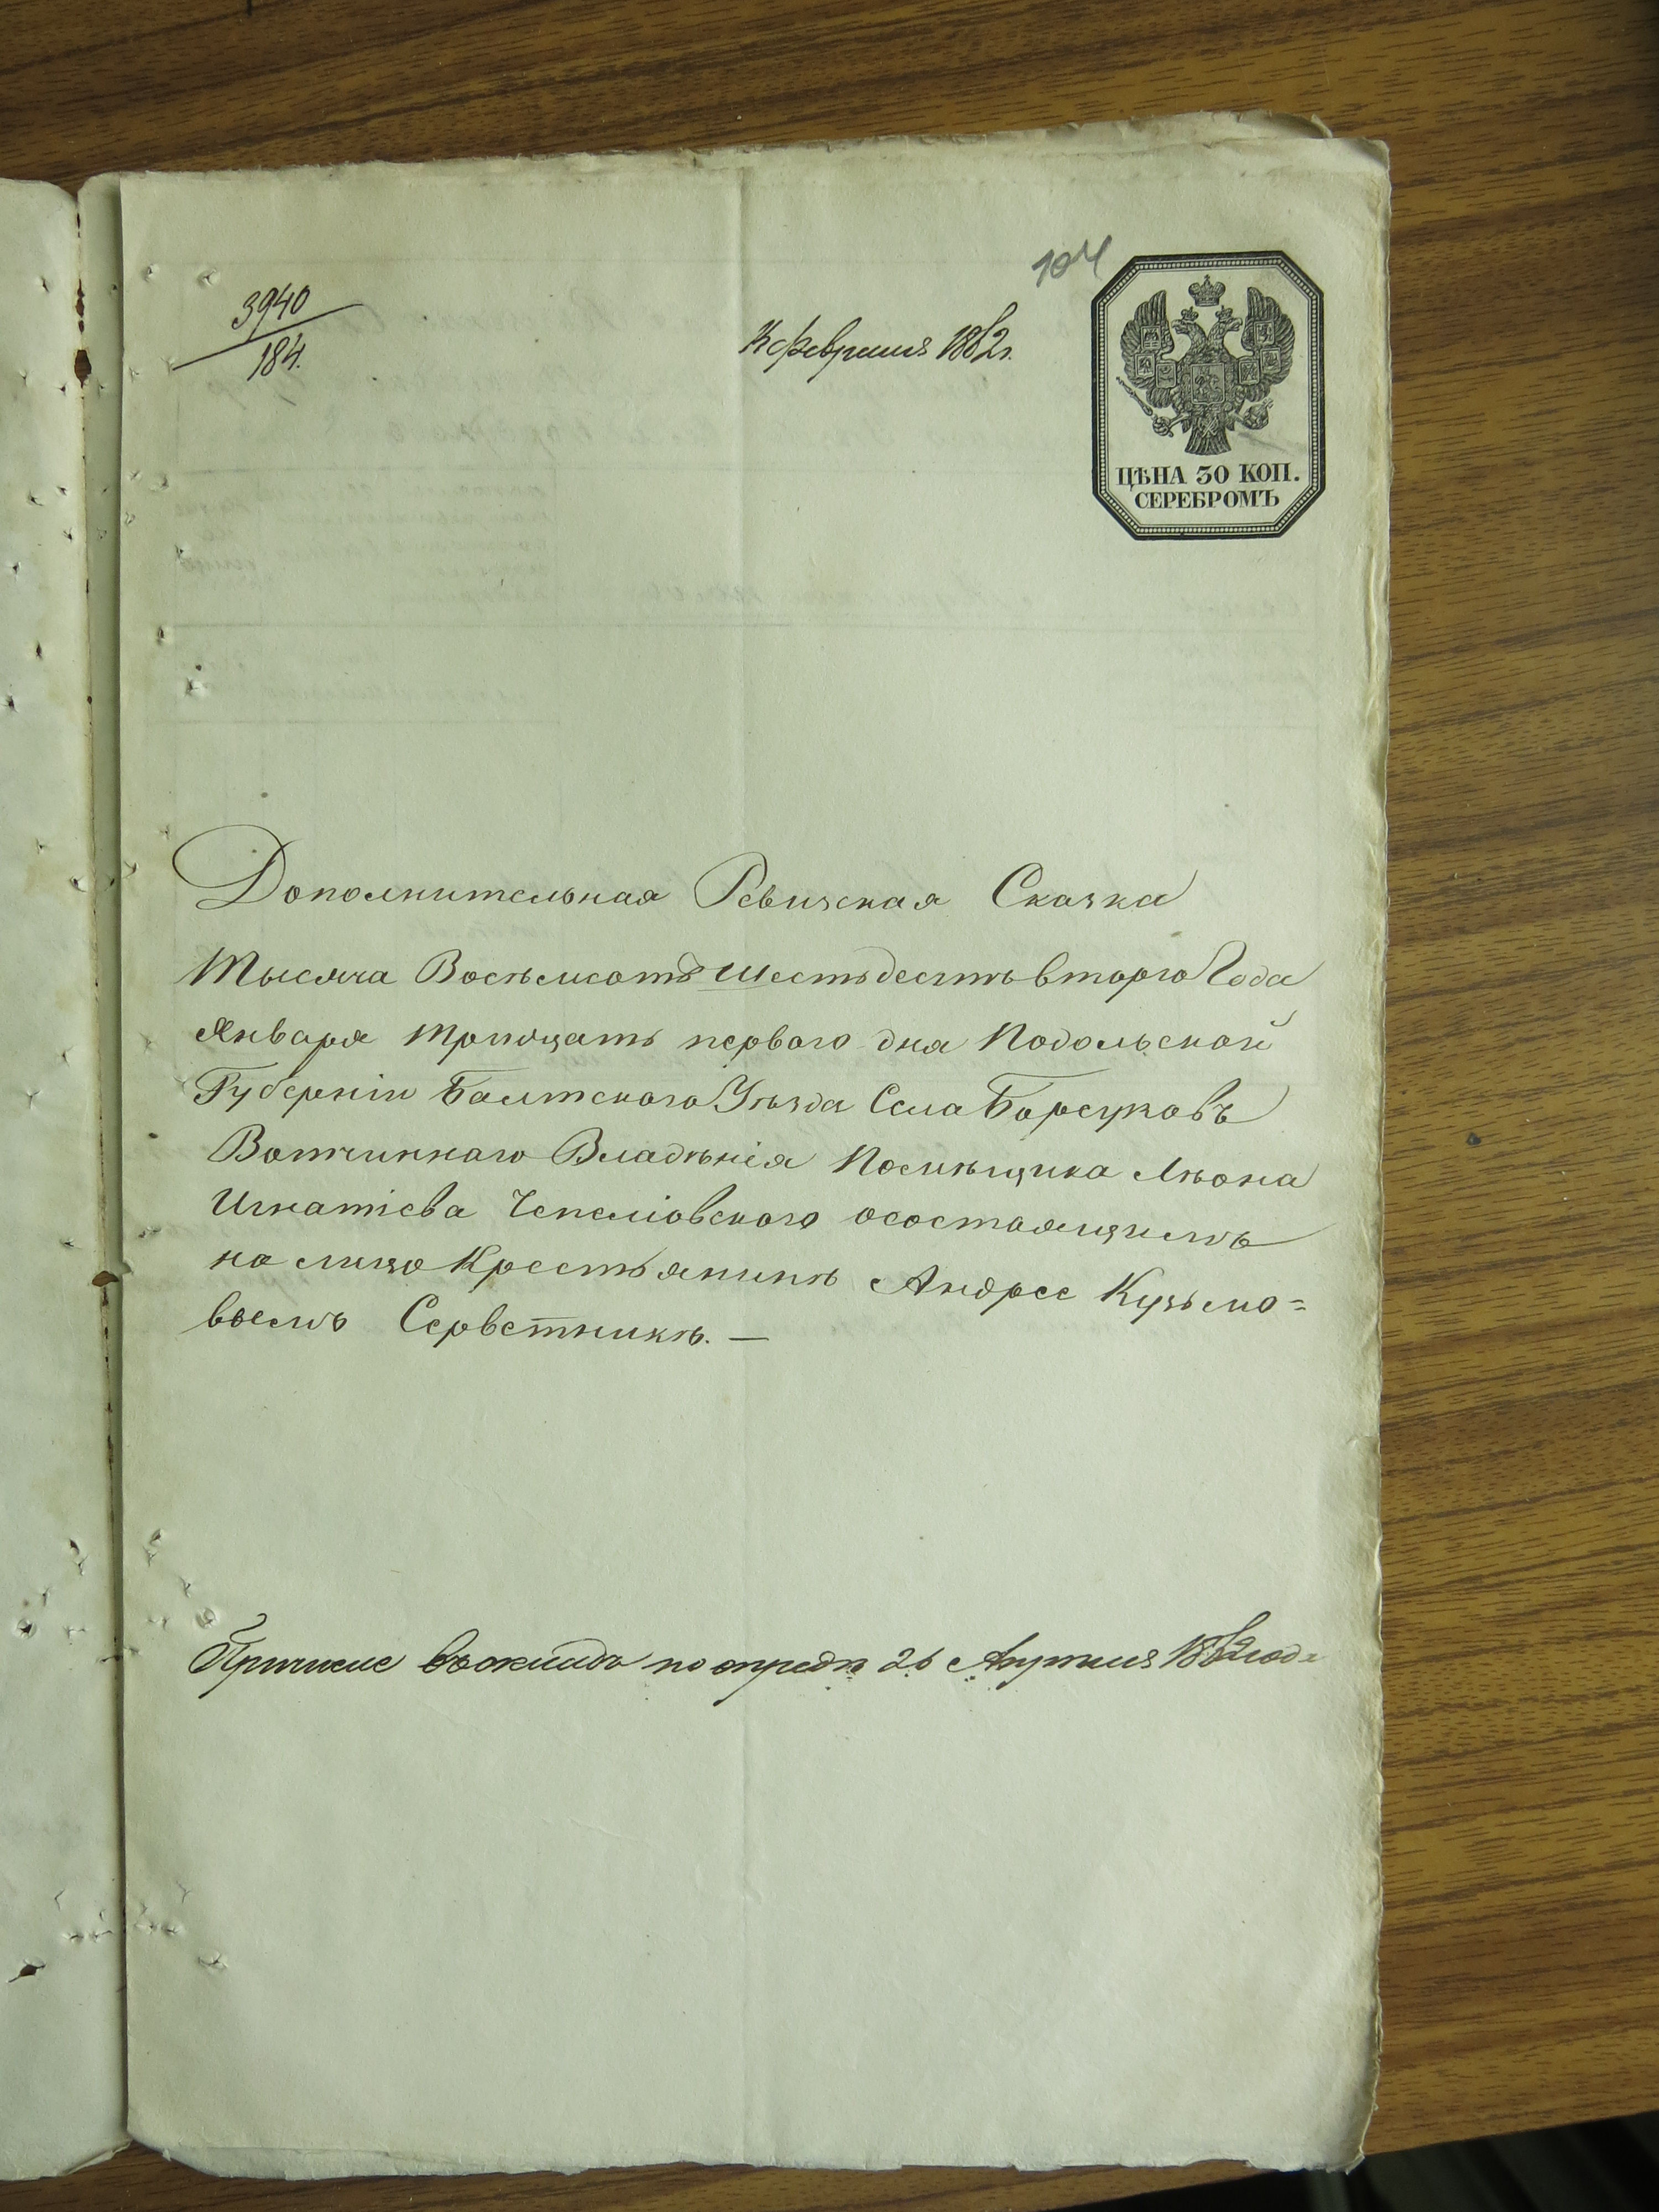 104
3940
184.
февраля 1862 г.
ЦѢНА 30 КОП.
СЕРЕБРОМЪ
Дополнительная Ревизская Сказка
Тысяча Восемьсотъ Шестьдесятъ второго Года
Января тритцать первого дня Подольской
Губерніи Балтского Уѣзда Села Борсуковъ
Вотчиннаго Владѣнія Помѣщика Лѣона
Игнатіева Чепеліовского осостоящимъ
на лицо Крестьянинѣ Андрее Кузьмо=
вымъ Серветникѣ. —
въ окладъ по опредѣ 26 Апрѣля 1862 года